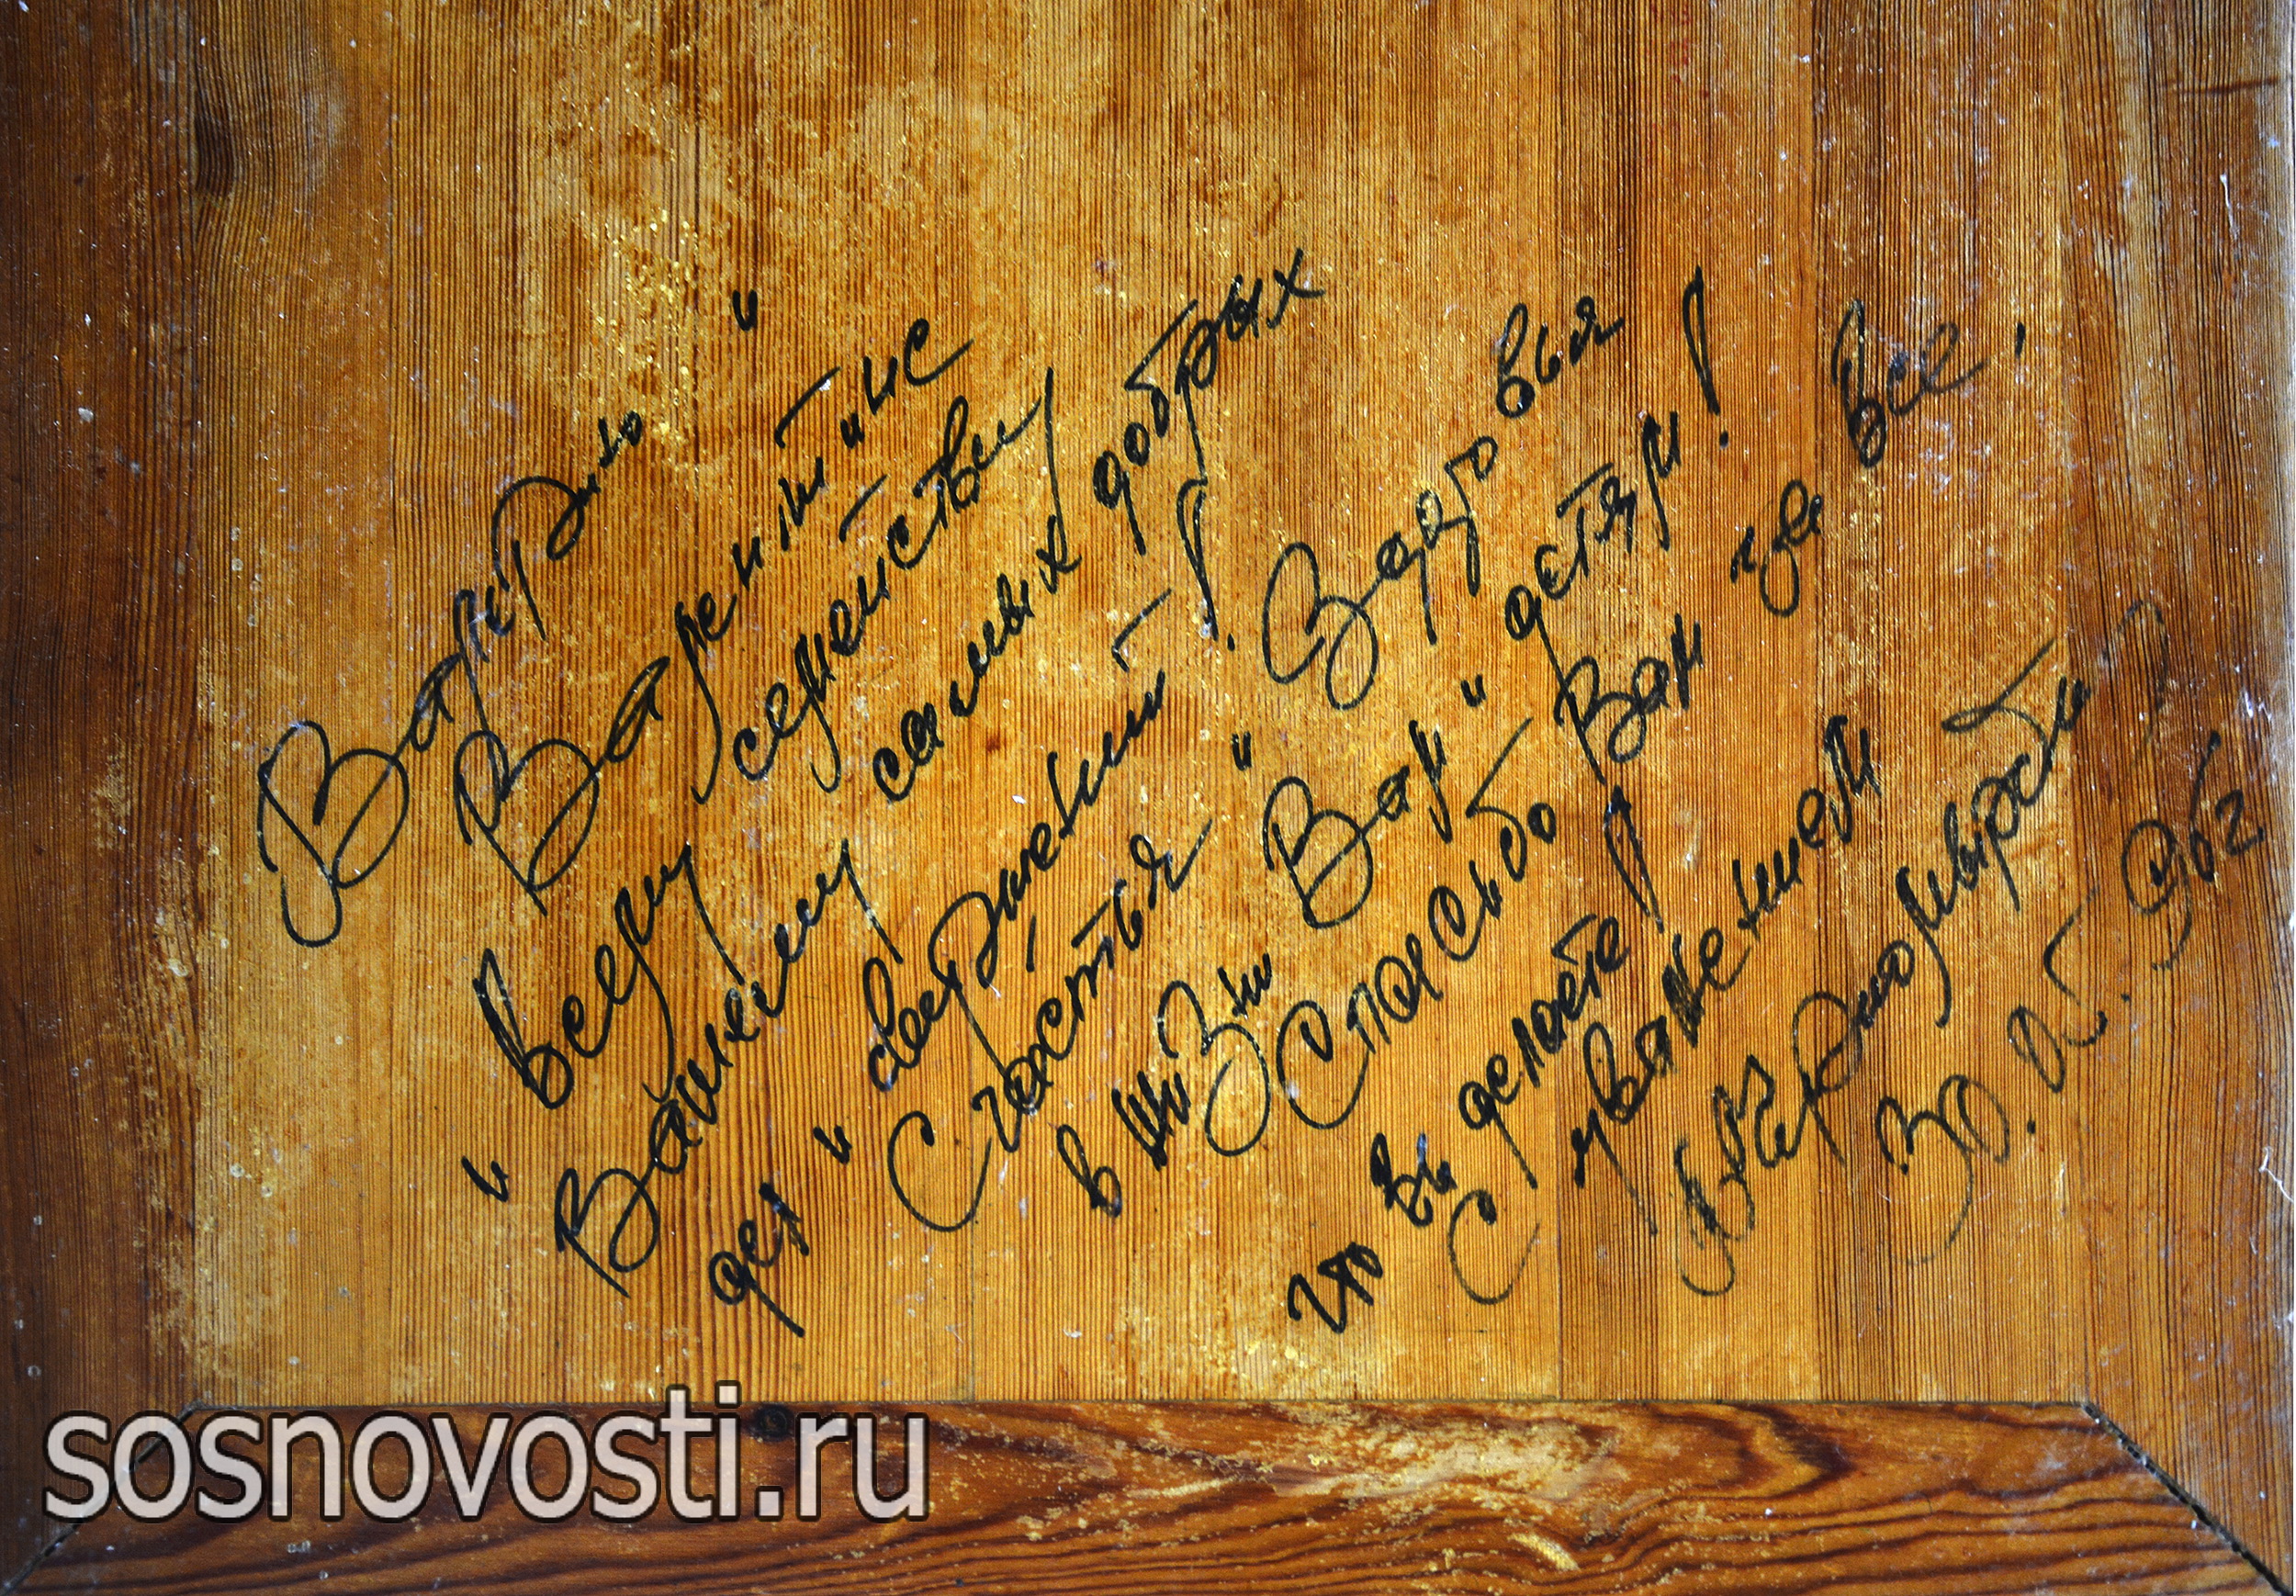 Валерию "
Валентине
"и Всему семейству
Вашему самых добрых
дел и свершений! Здоровья
Счастья и Вам и детям!
в жизни Спасибо Вам за все,
что Вы делаете!
С уважением
30.05.
sosnovosti.ru